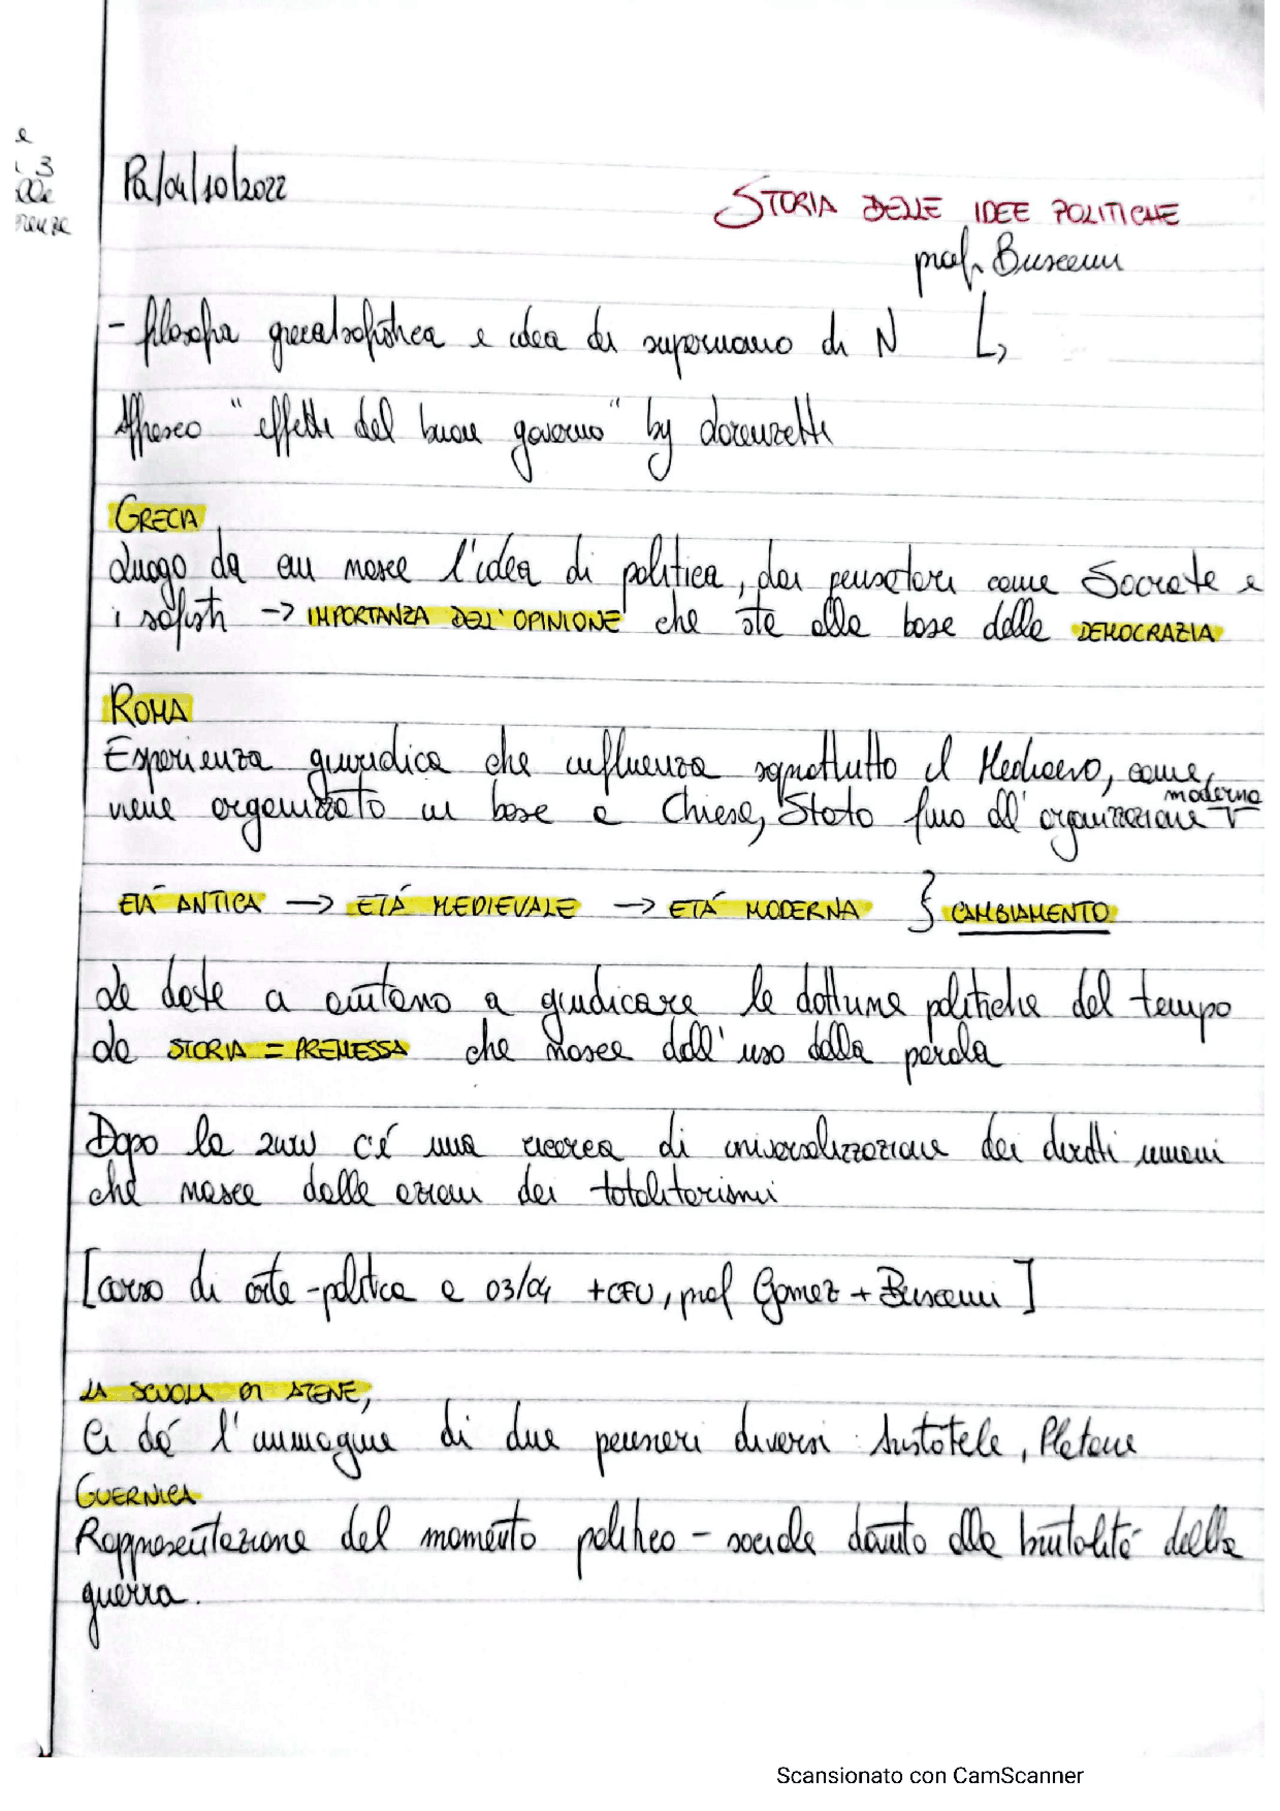 e
i 3
elle
renze
Pa/04/10/2022
STORIA DELLE IDEE POLITICHE
prof. Buscemi
- filosofia greca/sofistica e idea di superuomo di N
Affresco "effetti del buon governo" by Lorenzetti
GRECIA
Luogo da cui nasce l'idea di politica, dai pensatori come Socrate e
i sofisti -> IMPORTANZA DELL'OPINIONE che sta alla base della DEMOCRAZIA
ROMA
Esperienza giuridica che influenza soprattutto il Medioevo, come
viene organizzato in base a Chiesa, Stato fino all'organizzazione moderna
ETÁ ANTICA -> ETÁ MEDIEVALE -> ETÁ MODERNA } CAMBIAMENTO
Le date a aiutano a giudicare le dottrine politiche del tempo
La STORIA = PREMESSA che nasce dall'uso della parola
Dopo la 2WW c'é una ricerca di universalizzazione dei diritti umani
che nasce dalle azioni dei totalitarismi
[corso di arte-politica a 03/04 +CFU, prof Gomez + Buscemi]
LA SCUOLA DI ATENE,
Ci dá l'immagine di due pensieri diversi: Aristotele, Platone
GUERNICA
Rappresentazione del momento politico - sociale dovuto alla brutalitá della
guerra.
Scansionato con CamScanner